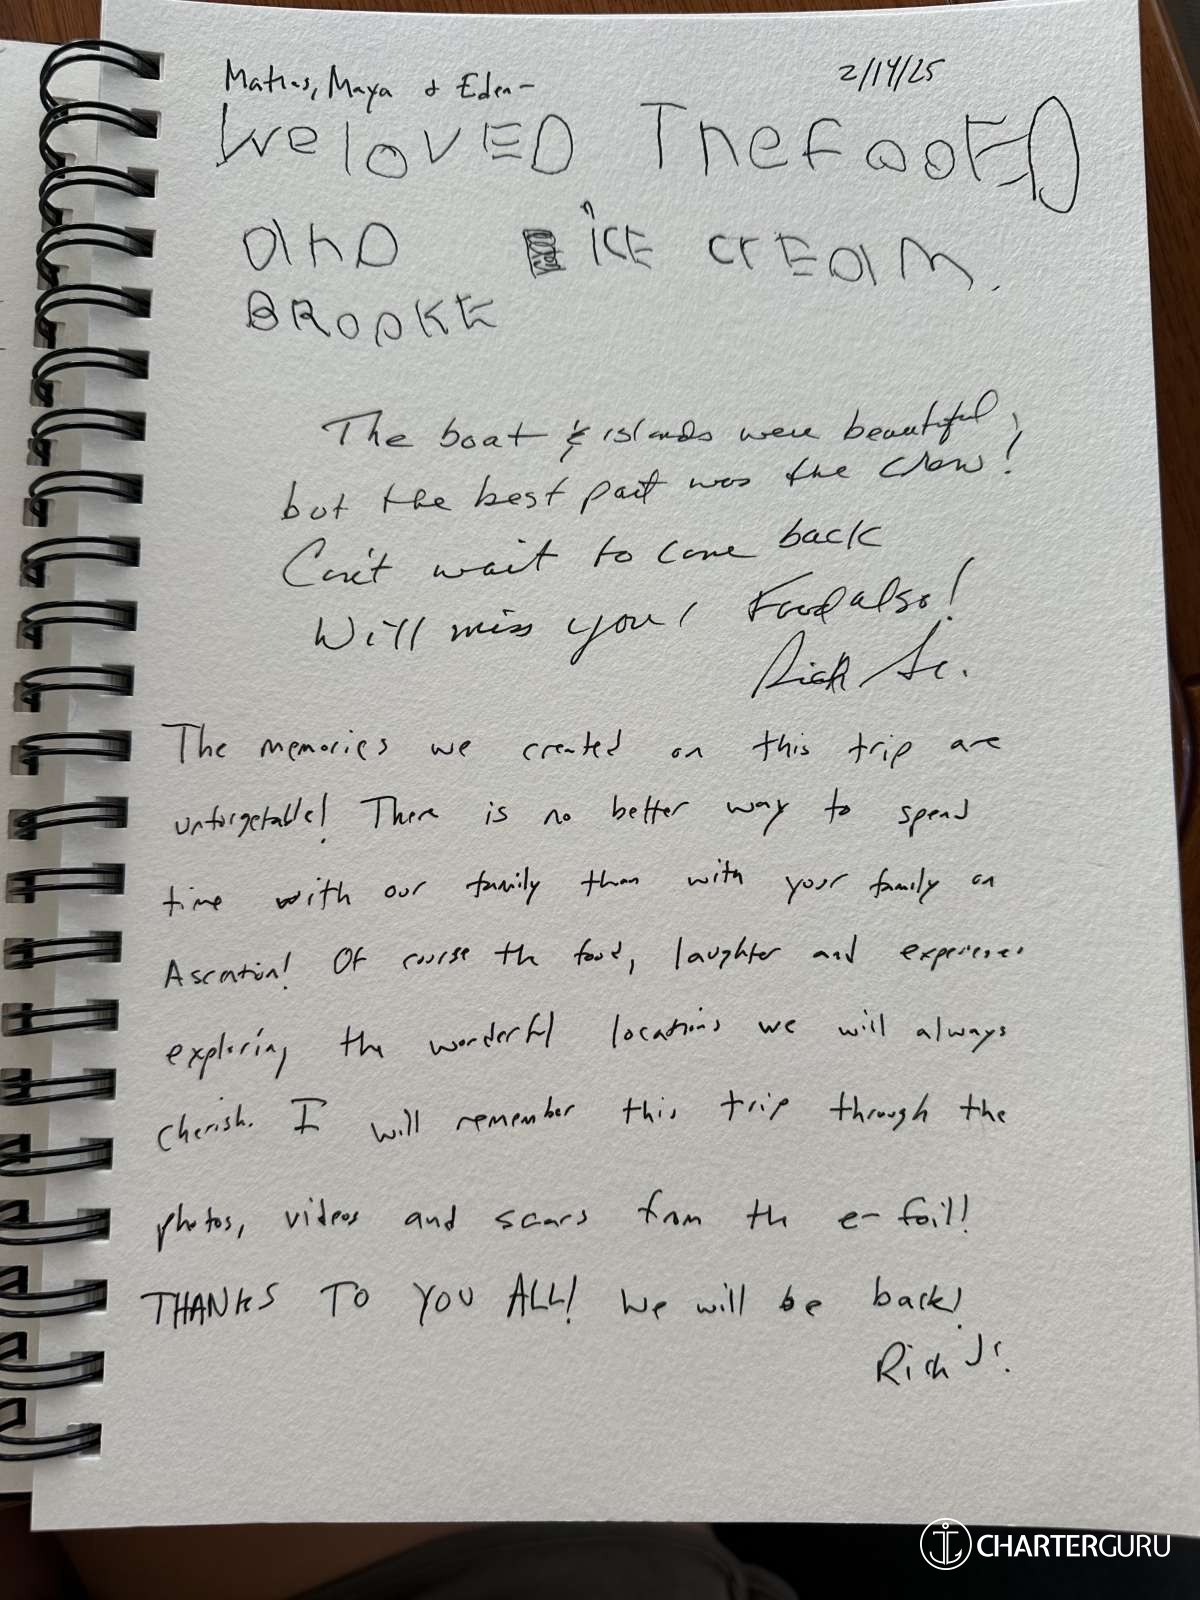 Matias, Maya & Eden-
2/14/25
We loVED The FooED
anD iCE CrEam.
BROOKE
The boat & islands were beautiful,
but the best part was the crew!
Can't wait to come back
Will miss you! Food also!
Rick Sr.
The memories we created on this trip are
unforgetable! There is no better way to spend
time with our family than with your family on
Ascention! Of course the food, laughter and experiences
exploring the wonderful locations we will always
cherish. I will remember this trip through the
photos, videos and scars from the e-foil!
THANKS TO YOU ALL! We will be back!
Rich Jr.
CHARTERGURU